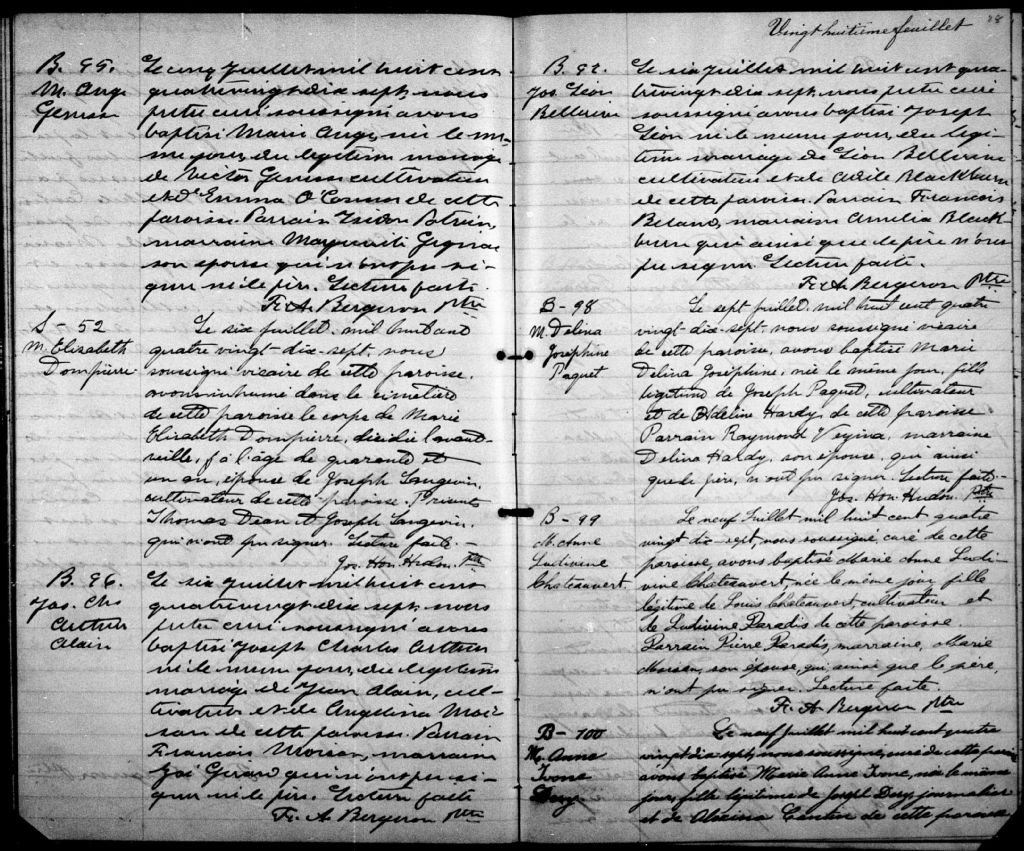 B. 95.
M. Ange
Genois
Le cinq Juillet mil huit cent
quatrevingt dix sept, nous
prêtre curé soussigné avons
baptisé Marie Ange, née le mê-
me jour, du légitime mariage
de Nector Genois cultivateur
et d'Emma O'Connor de cette
paroisse. Parrain Isidore
marraine Marguerite Gignac
son épouse qui n'ont pu si-
gner ni le père. Lecture faite.
Fr. A. Bergeron Ptre
S - 52
M. Elisabeth
Dompierre
Le six juillet, mil huit cent
quatre vingt-dix-sept, nous
soussigné vicaire de cette paroisse,
avons inhumé dans le cimetière
de cette paroisse le corps de Marie
Elisabeth Dompierre, décédée l'avant-
veille, à l'âge de quarante et
un an, épouse de Joseph Langevin,
cultivateur de cette paroisse. Présents
Thomas Dean et Joseph Langevin,
qui n'ont pu signer. Lecture faite. -
Jos. Hon. Hudon, Ptre
B. 96.
Jos. Chs
Arthur
Alain
Le six Juillet mil huit cent
quatrevingt dix sept, nous
prêtre curé soussigné avons
baptisé Joseph Charles Arthur
né le même jour, du légitime
mariage de Jean Alain, cul-
tivateur et de Angelina Moi-
san de cette paroisse. Parrain
François Moisan, marraine
Zoé Girard qui n'ont pu si-
gner ni le père. Lecture faite
Fr. A. Bergeron Ptre
28
Vingt huitième feuillet
B. 97.
Jos. Léon
Bellerive
Le six Juillet mil huit cent qua
trevingt dix sept, nous prêtre curé
soussigné avons baptisé Joseph
Léon né le même jour, du légi-
time mariage de Léon Bellerive
cultivateur et de Adèle Blackburn
de cette paroisse. Parrain François
Beland, marraine Amelia Black-
burn qui ainsi que le père n'ont
pu signer. Lecture faite.
Fr. A. Bergeron Ptre
B - 98
M. Delina
Joséphine
Paquet
Le sept juillet, mil huit cent quatre
vingt-dix-sept, nous soussigné vicaire
de cette paroisse, avons baptisé Marie
Delina Joséphine, née le même jour, fille
légitime de Joseph Paquet, cultivateur
et de Adeline Hardy, de cette paroisse
Parrain Raymond Vezina, marraine
Delina Hardy, son épouse, qui ainsi
que le père, n'ont pu signer. Lecture faite -
Jos. Hon. Hudon. Ptre
B - 99
M. Anne
Ludivine
Chateauvert
Le neuf Juillet mil huit cent quatre
vingt dix-sept, nous soussigné curé de cette
paroisse, avons baptisé Marie Anne Ludi-
vine Chateauvert, née le même jour, fille
légitime de Louis Chateauvert, cultivateur et
de Ludivine Paradis de cette paroisse.
Parrain Pierre Paradis, marraine, Marie
son épouse, qui, ainsi que le père,
n'ont pu signer. Lecture faite.
Fr. A. Bergeron Ptre
B - 100
M. Anne
Ivone
Dery
Le neuf Juillet mil huit cent quatre
vingt dix sept, nous soussigné, curé de cette paroisse
avons baptisé Marie Anne Ivone, née le même
jour, fille légitime de Joseph Dery journalier
et de Alexina Cantin de cette paroisse